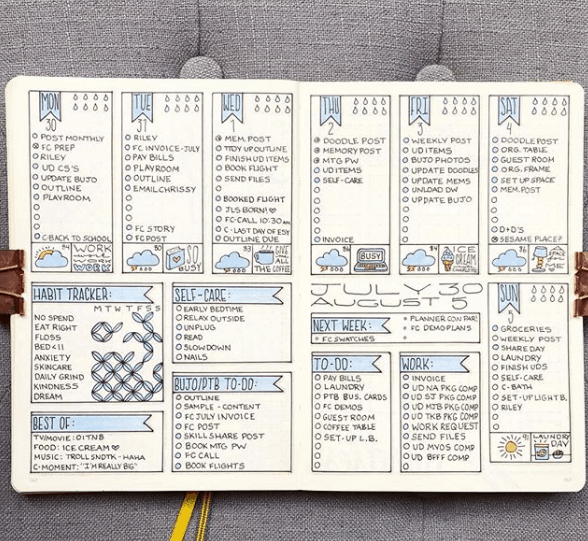 MON
30
POST MONTHLY
FC PREP
RILEY
UD CS'S
UPDATE BUJO
OUTLINE
PLAYROOM
C-BACK TO SCHOOL
84
WORK
WORK
WORK
WORK
TUE
31
RILEY
FC INVOICE-JULY
PAY BILLS
PLAYROOM
OUTLINE
EMAIL CHRISSY
FC STORY
FC POST
80
SO
BUSY
WED
1
MEM. POST
TIDY UP OUTLINE
FINISH UD ITEMS
BOOK FLIGHT
SEND FILES
BOOKED FLIGHT
JLS BORN!
FC-CALL 10:30 AM
C-LAST DAY OF ESY
OUTLINE DUE
83
GIVE
ME
ALL
THE COFFEE
THU
2
DOODLE POST
MEMORY POST
MTG PW
UD ITEMS
SELF-CARE
INVOICE
86
BUSY
FRI
3
WEEKLY POST
UD ITEMS
BUJO PHOTOS
UPDATE DOODLES
UPDATE MEMS
UNLOAD DW
UPDATE BUJO
84
ICE
CREAM
SAT
4
DOODLE POST
ORG. TABLE
GUEST ROOM
ORG. FRAME
SET UP SPACE
MEM. POST
D+D'S
SESAME PLACE?
86
HABIT TRACKER:
M T W T F S S
NO SPEND
EAT RIGHT
FLOSS
BED<11
ANXIETY
SKINCARE
DAILY GRIND
KINDNESS
DREAM
BEST OF:
TV/MOVIE: OITNB
FOOD: ICE CREAM
MUSIC: TROLL SNDTK - HAHA
C-MOMENT: "I'M REALLY BIG"
SELF-CARE:
EARLY BEDTIME
RELAX OUTSIDE
UNPLUG
READ
SLOW DOWN
NAILS
BUJO/PTB TO-DO:
OUTLINE
SAMPLE - CONTENT
FC JULY INVOICE
FC POST
SKILLSHARE POST
BOOK MTG PW
FC CALL
BOOK FLIGHTS
JULY 30
AUGUST 5
NEXT WEEK:
FC SWATCHES
PLANNER CON PAR!
FC DEMO PLANS
TO-DO:
PAY BILLS
LAUNDRY
PTB BUS. CARDS
FC DEMOS
GUEST ROOM
COFFEE TABLE
SET-UP L.B.
WORK:
INVOICE
UD NA PKG COMP
UD SJ PKG COMP
UD MTB PKG COMP
UD TKB PKG COMP
WORK REQUEST
SEND FILES
UD MYOS COMP
UD BFFF COMP
SUN
5
GROCERIES
WEEKLY POST
SHARE DAY
LAUNDRY
FINISH UDS
SELF-CARE
C-BATH
SET-UP LIGHT B.
RILEY
91
LAUNDRY
DAY